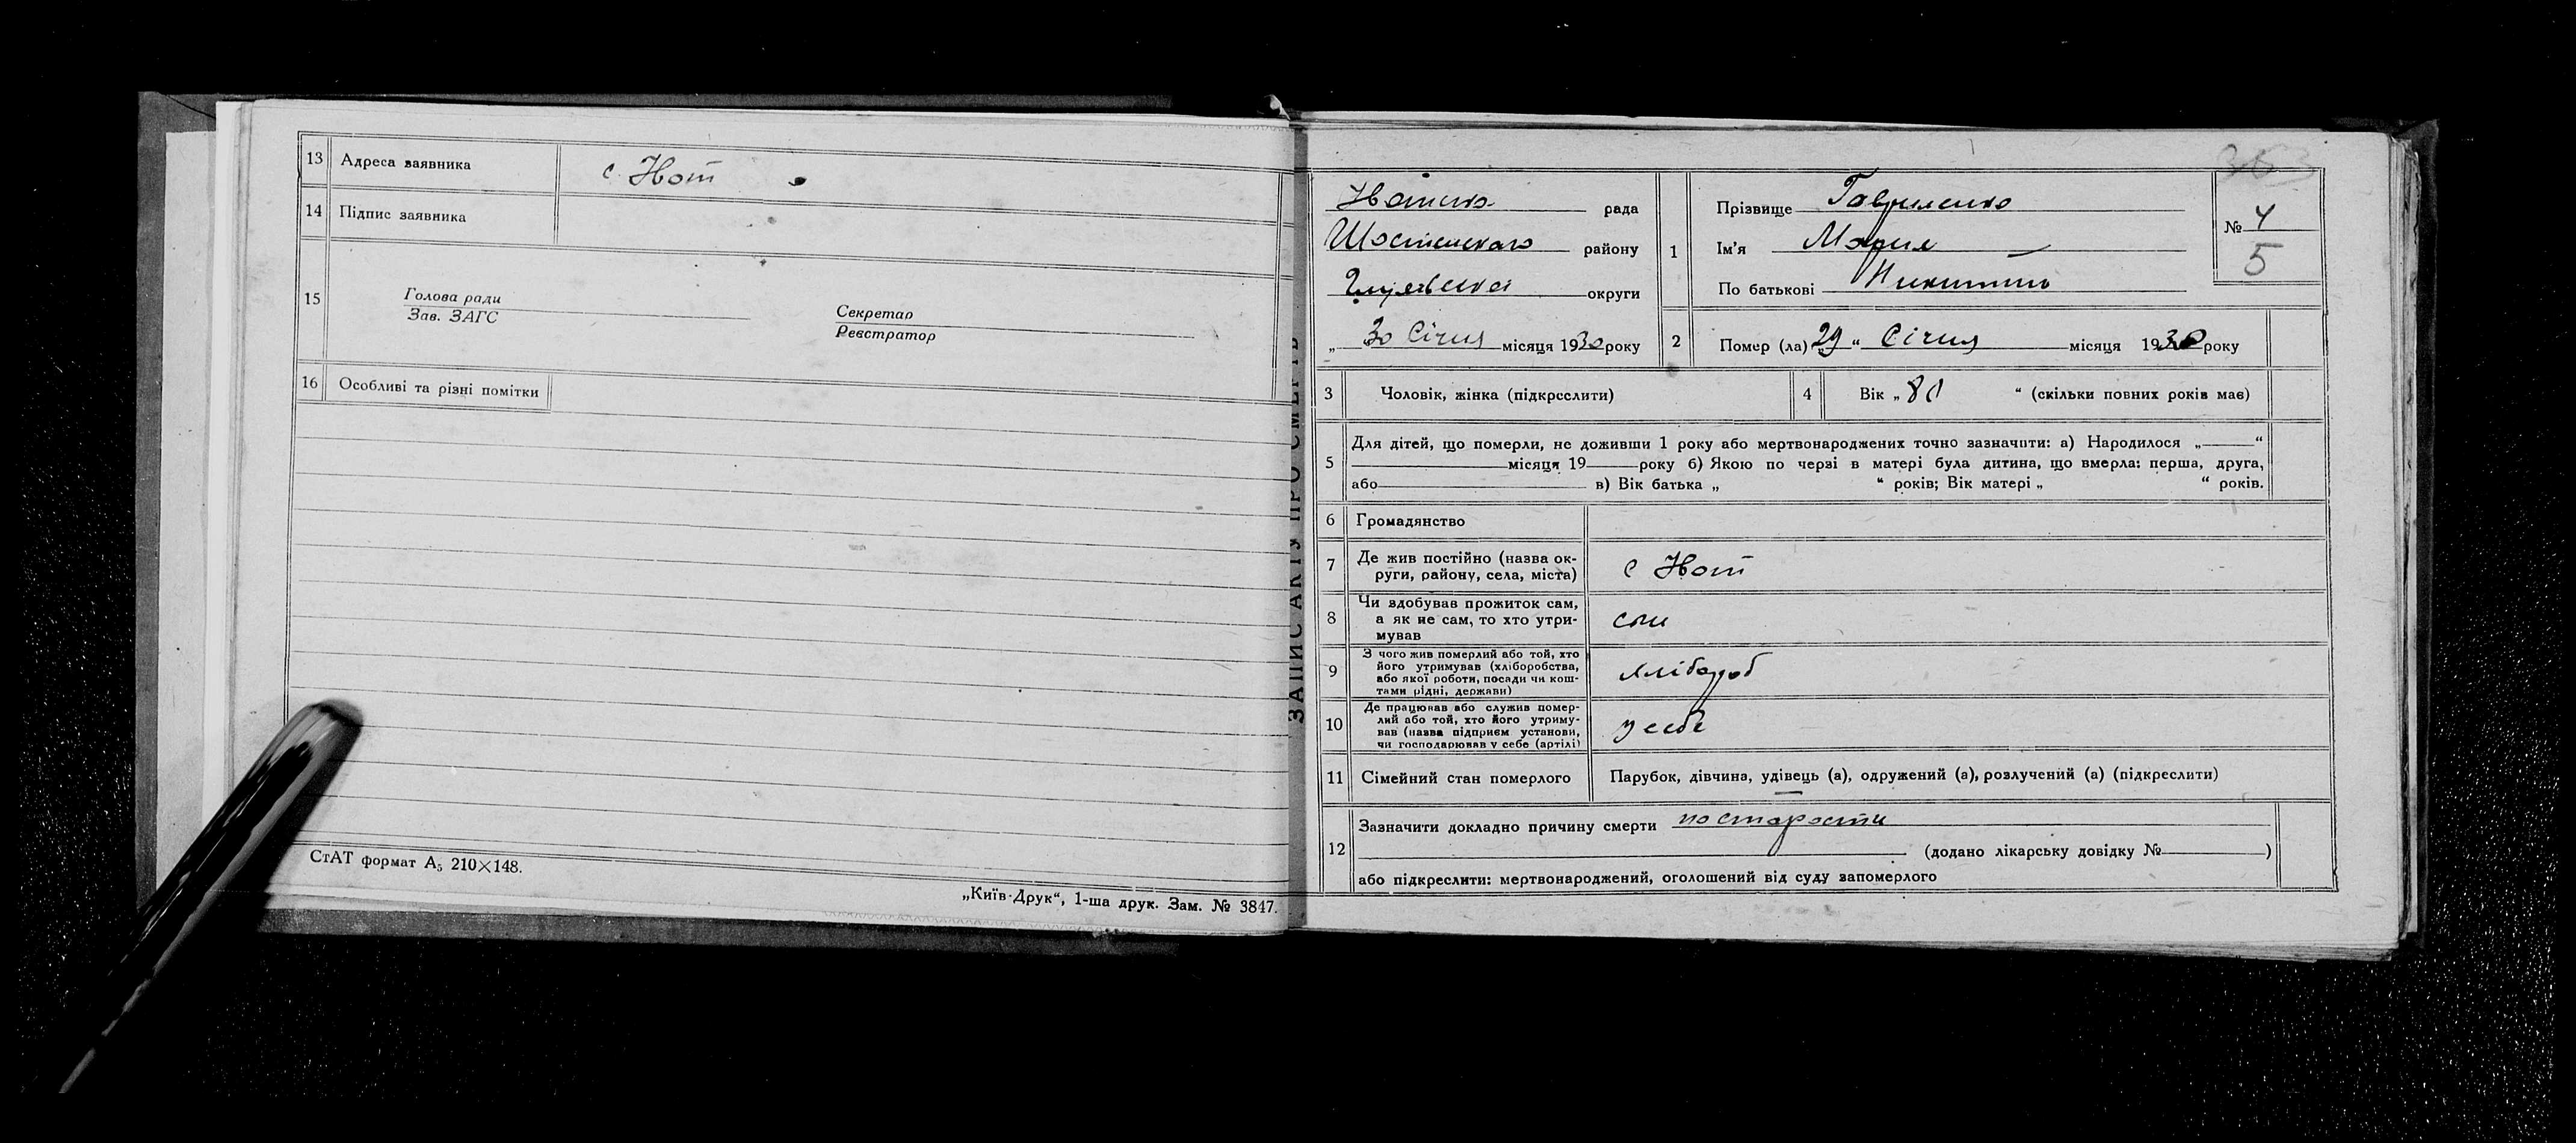 13 Адреса заявника с. Ивот
14 Підпис заявника
15 Голова ради
Зав. ЗАГС
Секретар
Реєстратор
16 Особливі та різні помітки
СтАТ формат А5 210×148.
„Київ-Друк“, 1-ша друк. Зам. № 3847.
ЗАПИС АКТУ ПРО СМЕРТЬ
рада
Шостенського району
округи
„ 30 Січня місяця 1930 року
1 Прізвище Гавриленко
Ім'я Мария
По батькові
№ 4
5
2 Помер (ла) „29“ Січня місяця 1930 року
3 Чоловік, жінка (підкреслити)
4 Вік „ “ (скільки повних років має)
5 Для дітей, що померли, не доживши 1 року або мертвонароджених точно зазначити: а) Народилося „ “
місяця 19 року б) Якою по черзі в матері була дитина, що вмерла: перша, друга,
або в) Вік батька „ “ років; Вік матері „ “ років.
6 Громадянство
7 Де жив постійно (назва ок-
руги, району, села, міста) с Ивот
8 Чи здобував прожиток сам,
а як не сам, то хто утри-
мував
9 З чого жив померлий або той, хто
його утримував (хліборобства,
або якої роботи, посади чи кош-
тами рідні, держави) хлібороб
10 Де працював або служив помер-
лий або той, хто його утриму-
вав (назва підприєм установи,
чи господарював у себе (артілі) у себе
11 Сімейний стан померлого Парубок, дівчина, удівець (а), одружений (а), розлучений (а) (підкреслити)
12 Зазначити докладно причину смерти по старости
(додано лікарську довідку № )
або підкреслити: мертвонароджений, оголошений від суду запомерлого